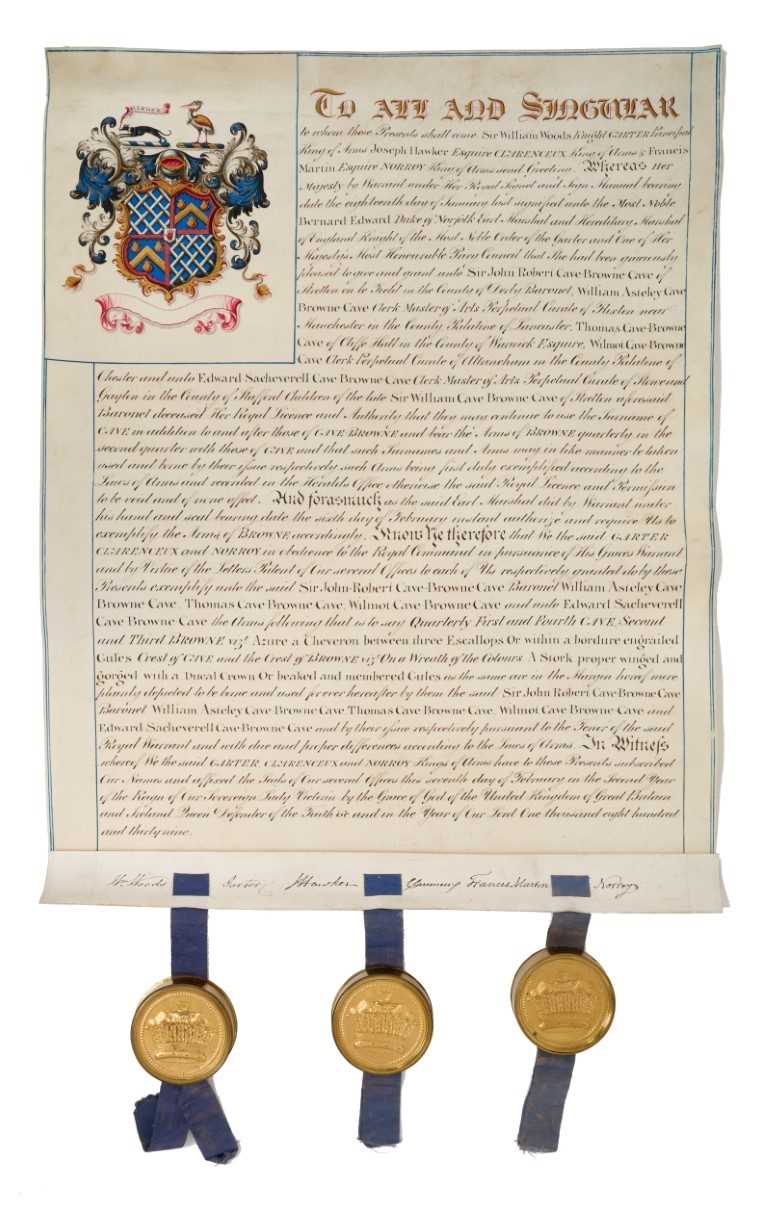 TO ALL AND SINGULAR
to whom these Presents shall come Sir William Woods Knight GARTER Principal
King of Arms Joseph Hawker Esquire CLARENCEUX King of Arms & Francis
Martin Esquire NORROY King of Arms send Greeting. Whereas Her
Majesty by Warrant under Her Royal Signet and Sign Manual bearing
date the eighteenth day of January last signified unto the Most Noble
Bernard Edward Duke of Norfolk Earl Marshal and Hereditary Marshal
of England Knight of the Most Noble Order of the Garter and One of Her
Majesty's Most Honourable Privy Council that She had been graciously
pleased to give and grant unto Sir John Robert Cave Browne Cave of
Stretton en le Field in the County of Derby Baronet, William Asteley Cave
Browne Cave Clerk Master of Arts Perpetual Curate of Flixton near
Manchester in the County Palatine of Lancaster, Thomas Cave-Browne
Cave of Cliffe Hall in the County of Warwick Esquire, Wilmot Cave Browne
Cave Clerk Perpetual Curate of in the County Palatine of
Chester and unto Edward Sacheverell Cave Browne Cave Clerk Master of Arts Perpetual Curate of Stowe and
Gayton in the County of Stafford Children of the late Sir William Cave Browne Cave of Stretton aforesaid
Baronet deceased Her Royal Licence and Authority that they may continue to use the Surname of
CAVE in addition to and after those of CAVE-BROWNE and bear the Arms of BROWNE quarterly in the
second quarter with those of CAVE and that such Surnames and Arms may in like manner be taken
used and borne by their issue respectively such Arms being first duly exemplified according to the
Laws of Arms and recorded in the Heralds Office otherwise the said Royal Licence and Permission
to be void and of none effect. And forasmuch as the said Earl Marshal did by Warrant under
his hand and seal bearing date the sixth day of February instant authorize and require Us to
exemplify the Arms of BROWNE accordingly. Know Ye therefore that We the said GARTER
CLARENCEUX and NORROY in obedience to the Royal Command in pursuance of His Graces Warrant
and by Virtue of the Letters Patent of Our several Offices to each of Us respectively granted do by these
Presents exemplify unto the said Sir John-Robert Cave-Browne Cave Baronet William Asteley Cave
Browne Cave, Thomas Cave Browne Cave, Wilmot Cave Browne Cave and unto Edward Sacheverell
Cave Browne Cave the Arms following that is to say Quarterly First and Fourth CAVE, Second
and Third BROWNE vizt Azure a Cheveron between three Escallops Or within a bordure engrailed
Gules Crest of CAVE and the Crest of BROWNE vizt On a Wreath of the Colours A Stork proper winged and
gorged with a Ducal Crown Or beaked and membered Gules as the same are in the Margin hereof more
plainly depicted to be borne and used for ever hereafter by them the said Sir John Robert Cave-Browne Cave
Baronet William Asteley Cave Browne Cave, Thomas Cave Browne Cave, Wilmot Cave Browne Cave and
Edward Sacheverell Cave Browne Cave and by their issue respectively pursuant to the Tenor of the said
Royal Warrant and with due and proper differences according to the Laws of Arms. In Witness
whereof We the said GARTER, CLARENCEUX and NORROY Kings of Arms have to these Presents subscribed
Our Names and affixed the Seals of Our several Offices this seventh day of February in the Second Year
of the Reign of Our Sovereign Lady Victoria by the Grace of God of the United Kingdom of Great Britain
and Ireland Queen Defender of the Faith &c and in the Year of Our Lord One thousand eight hundred
and thirty nine.
Wm Woods Garter J Hawker Clarenceux Francis Martin Norroy